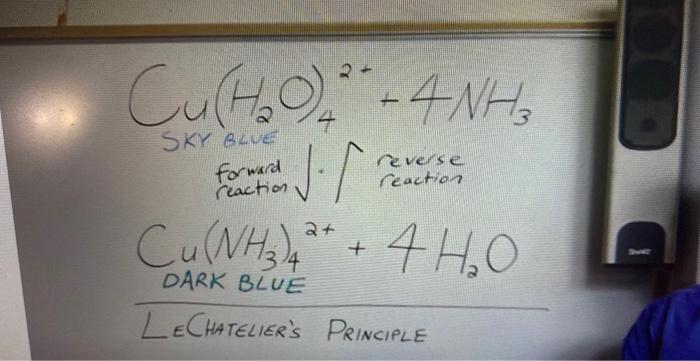 Cu(H₂O)₄²⁺ + 4NH₃
SKY BLUE
forward
reaction
reverse
reaction
Cu(NH₃)₄²⁺ + 4H₂O
DARK BLUE
LECHATELIER'S PRINCIPLE
SMART